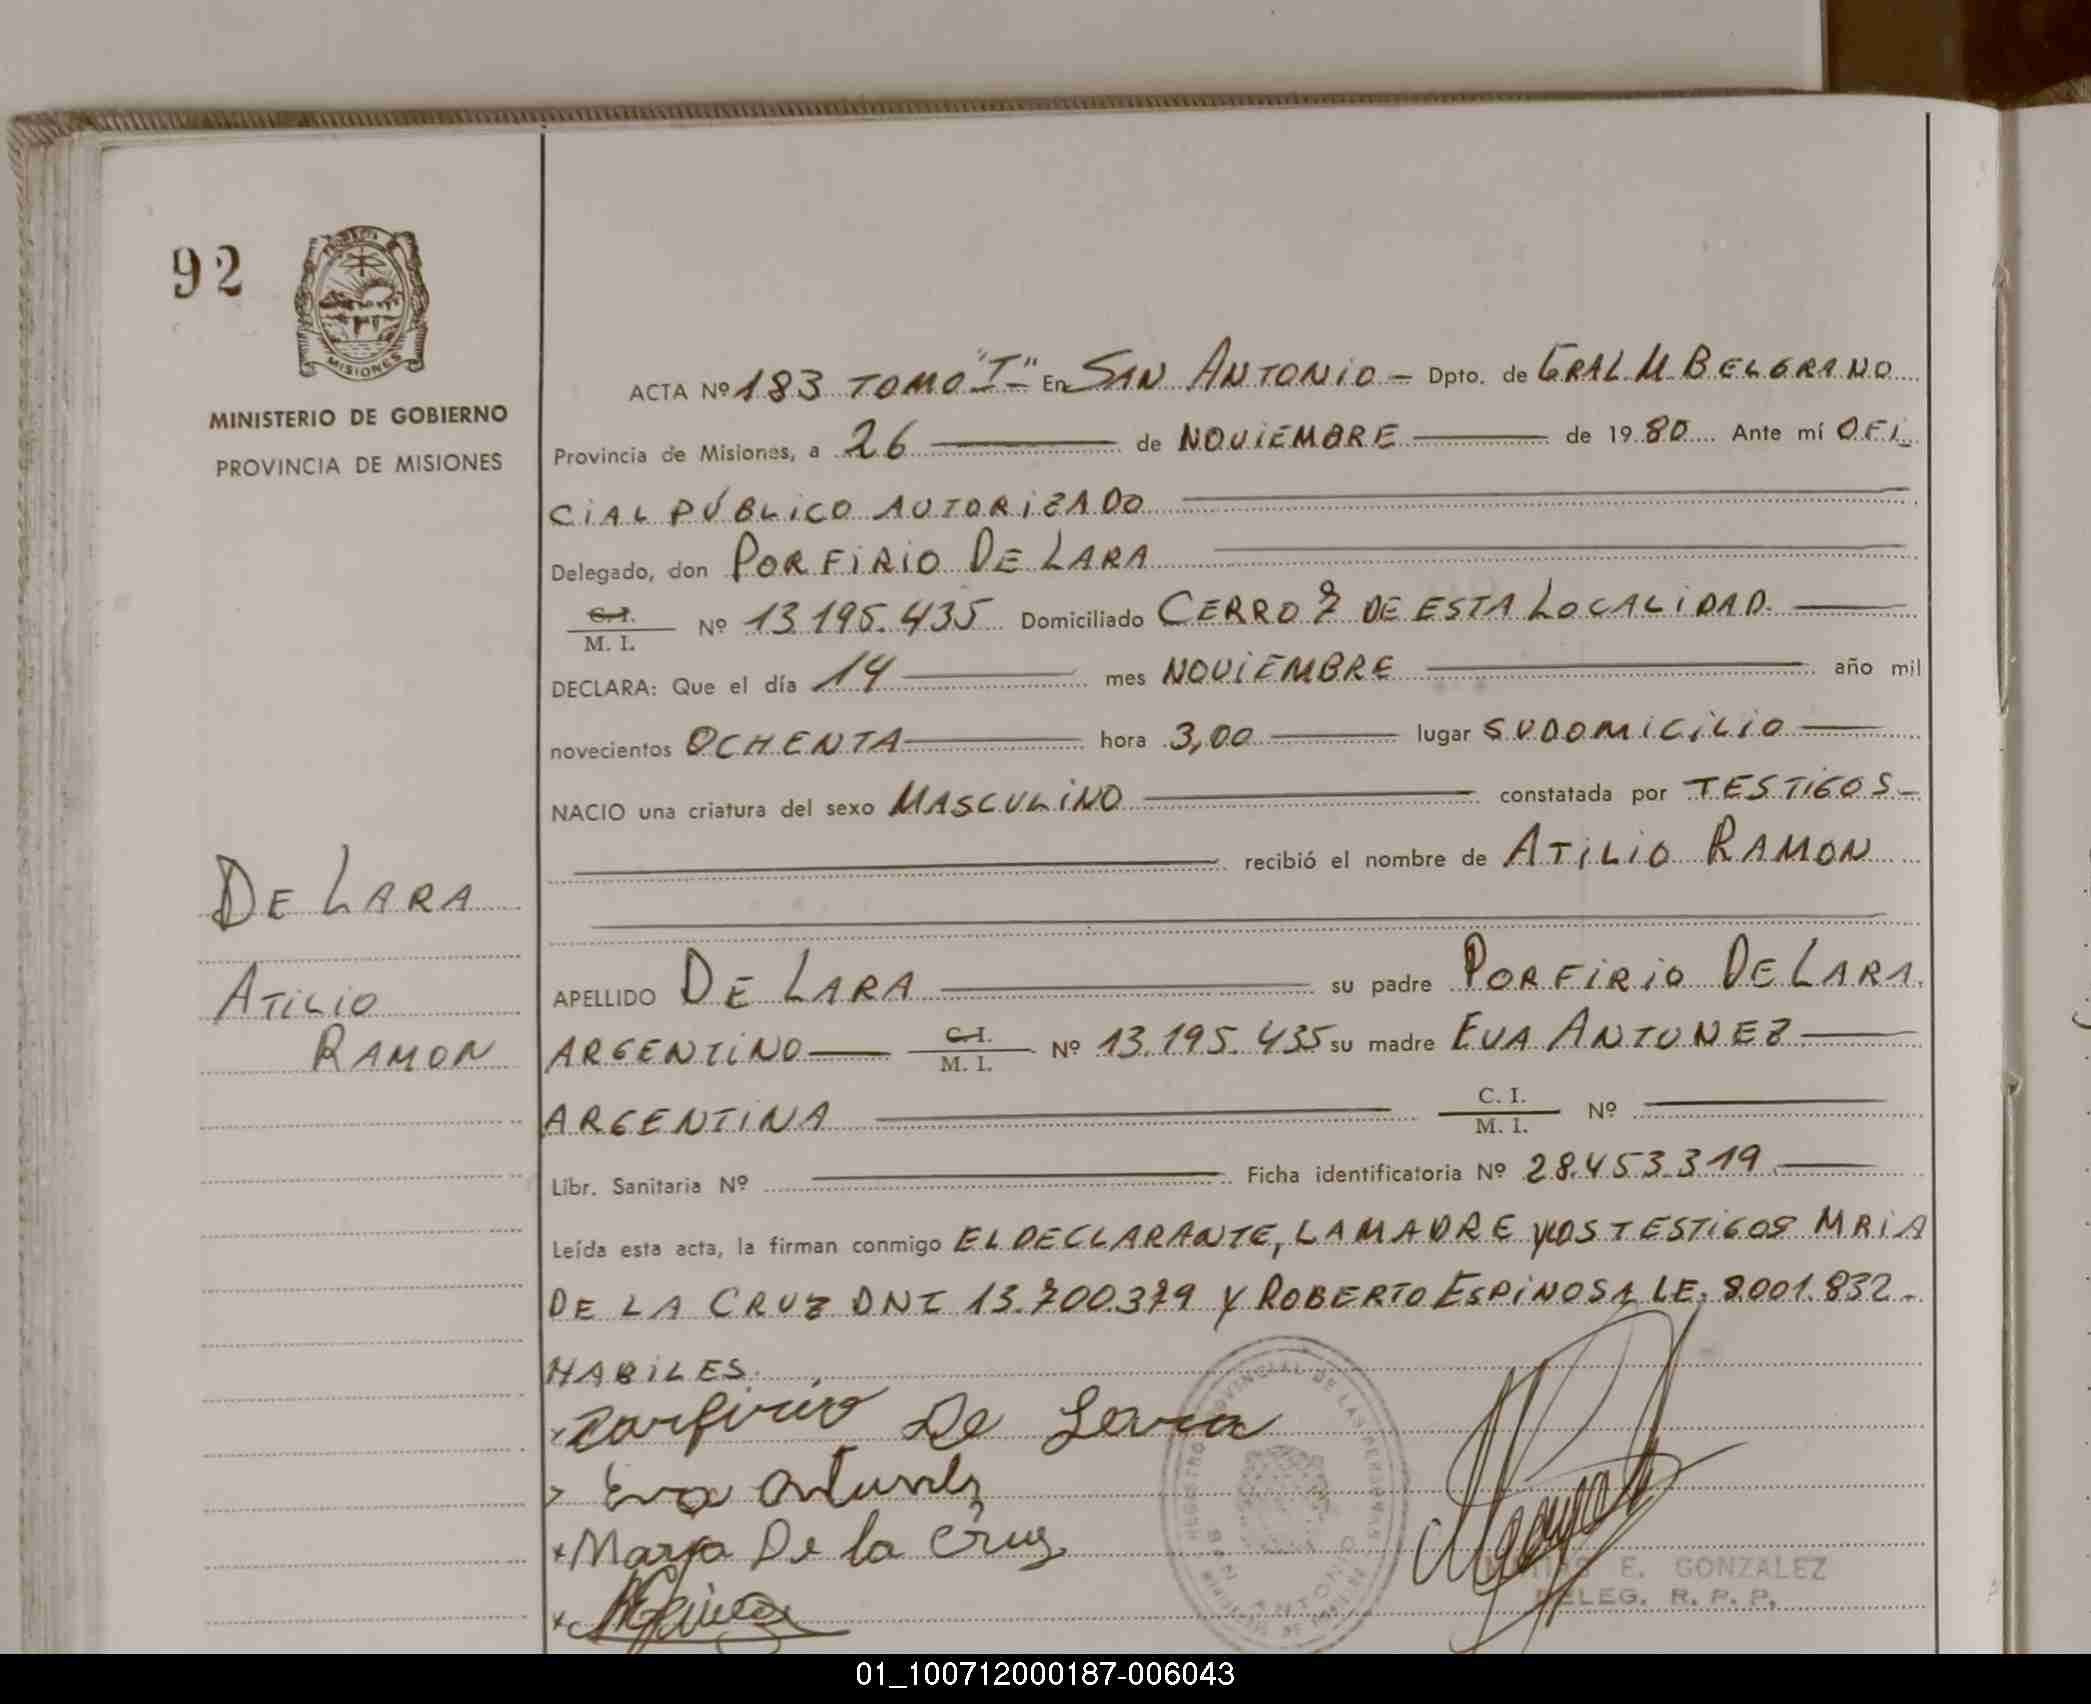 92
MISIONES
MINISTERIO DE GOBIERNO
PROVINCIA DE MISIONES
ACTA Nº 183 TOMO "I" En SAN ANTONIO - Dpto. de GRAL M BELGRANO
Provincia de Misiones, a 26 de NOVIEMBRE de 1980 Ante mí OFI
CIAL PÚBLICO AUTORIZADO
Delegado, don PORFIRIO DE LARA
C.I.
M. I. Nº 13.195.435 Domiciliado CERRO 7 DE ESTA LOCALIDAD.
DECLARA: Que el día 14 mes NOVIEMBRE año mil
novecientos OCHENTA hora 3,00 lugar SU DOMICILIO
NACIO una criatura del sexo MASCULINO constatada por TESTIGOS-
recibió el nombre de ATILIO RAMON
DE LARA
ATILIO
RAMON
APELLIDO DE LARA su padre PORFIRIO DE LARA.
ARGENTINO C.I.
M. I. Nº 13.195.435 su madre EVA ANTUNEZ
ARGENTINA C. I.
M. I. Nº
Libr. Sanitaria Nº Ficha identificatoria Nº 28.453.319
Leída esta acta, la firman conmigo EL DECLARANTE, LA MADRE Y LOS TESTIGOS MRIA
DE LA CRUZ DNI 13.700.379 Y ROBERTO ESPINOSA LE. 8.001.832.-
HABILES.
Porfirio De Lara
Eva Antunez
Maria De la Cruz
REGISTRO PROVINCIAL DE LAS PERSONAS
SAN ANTONIO
E. GONZALEZ
DELEG. R. P. P.
01_100712000187-006043